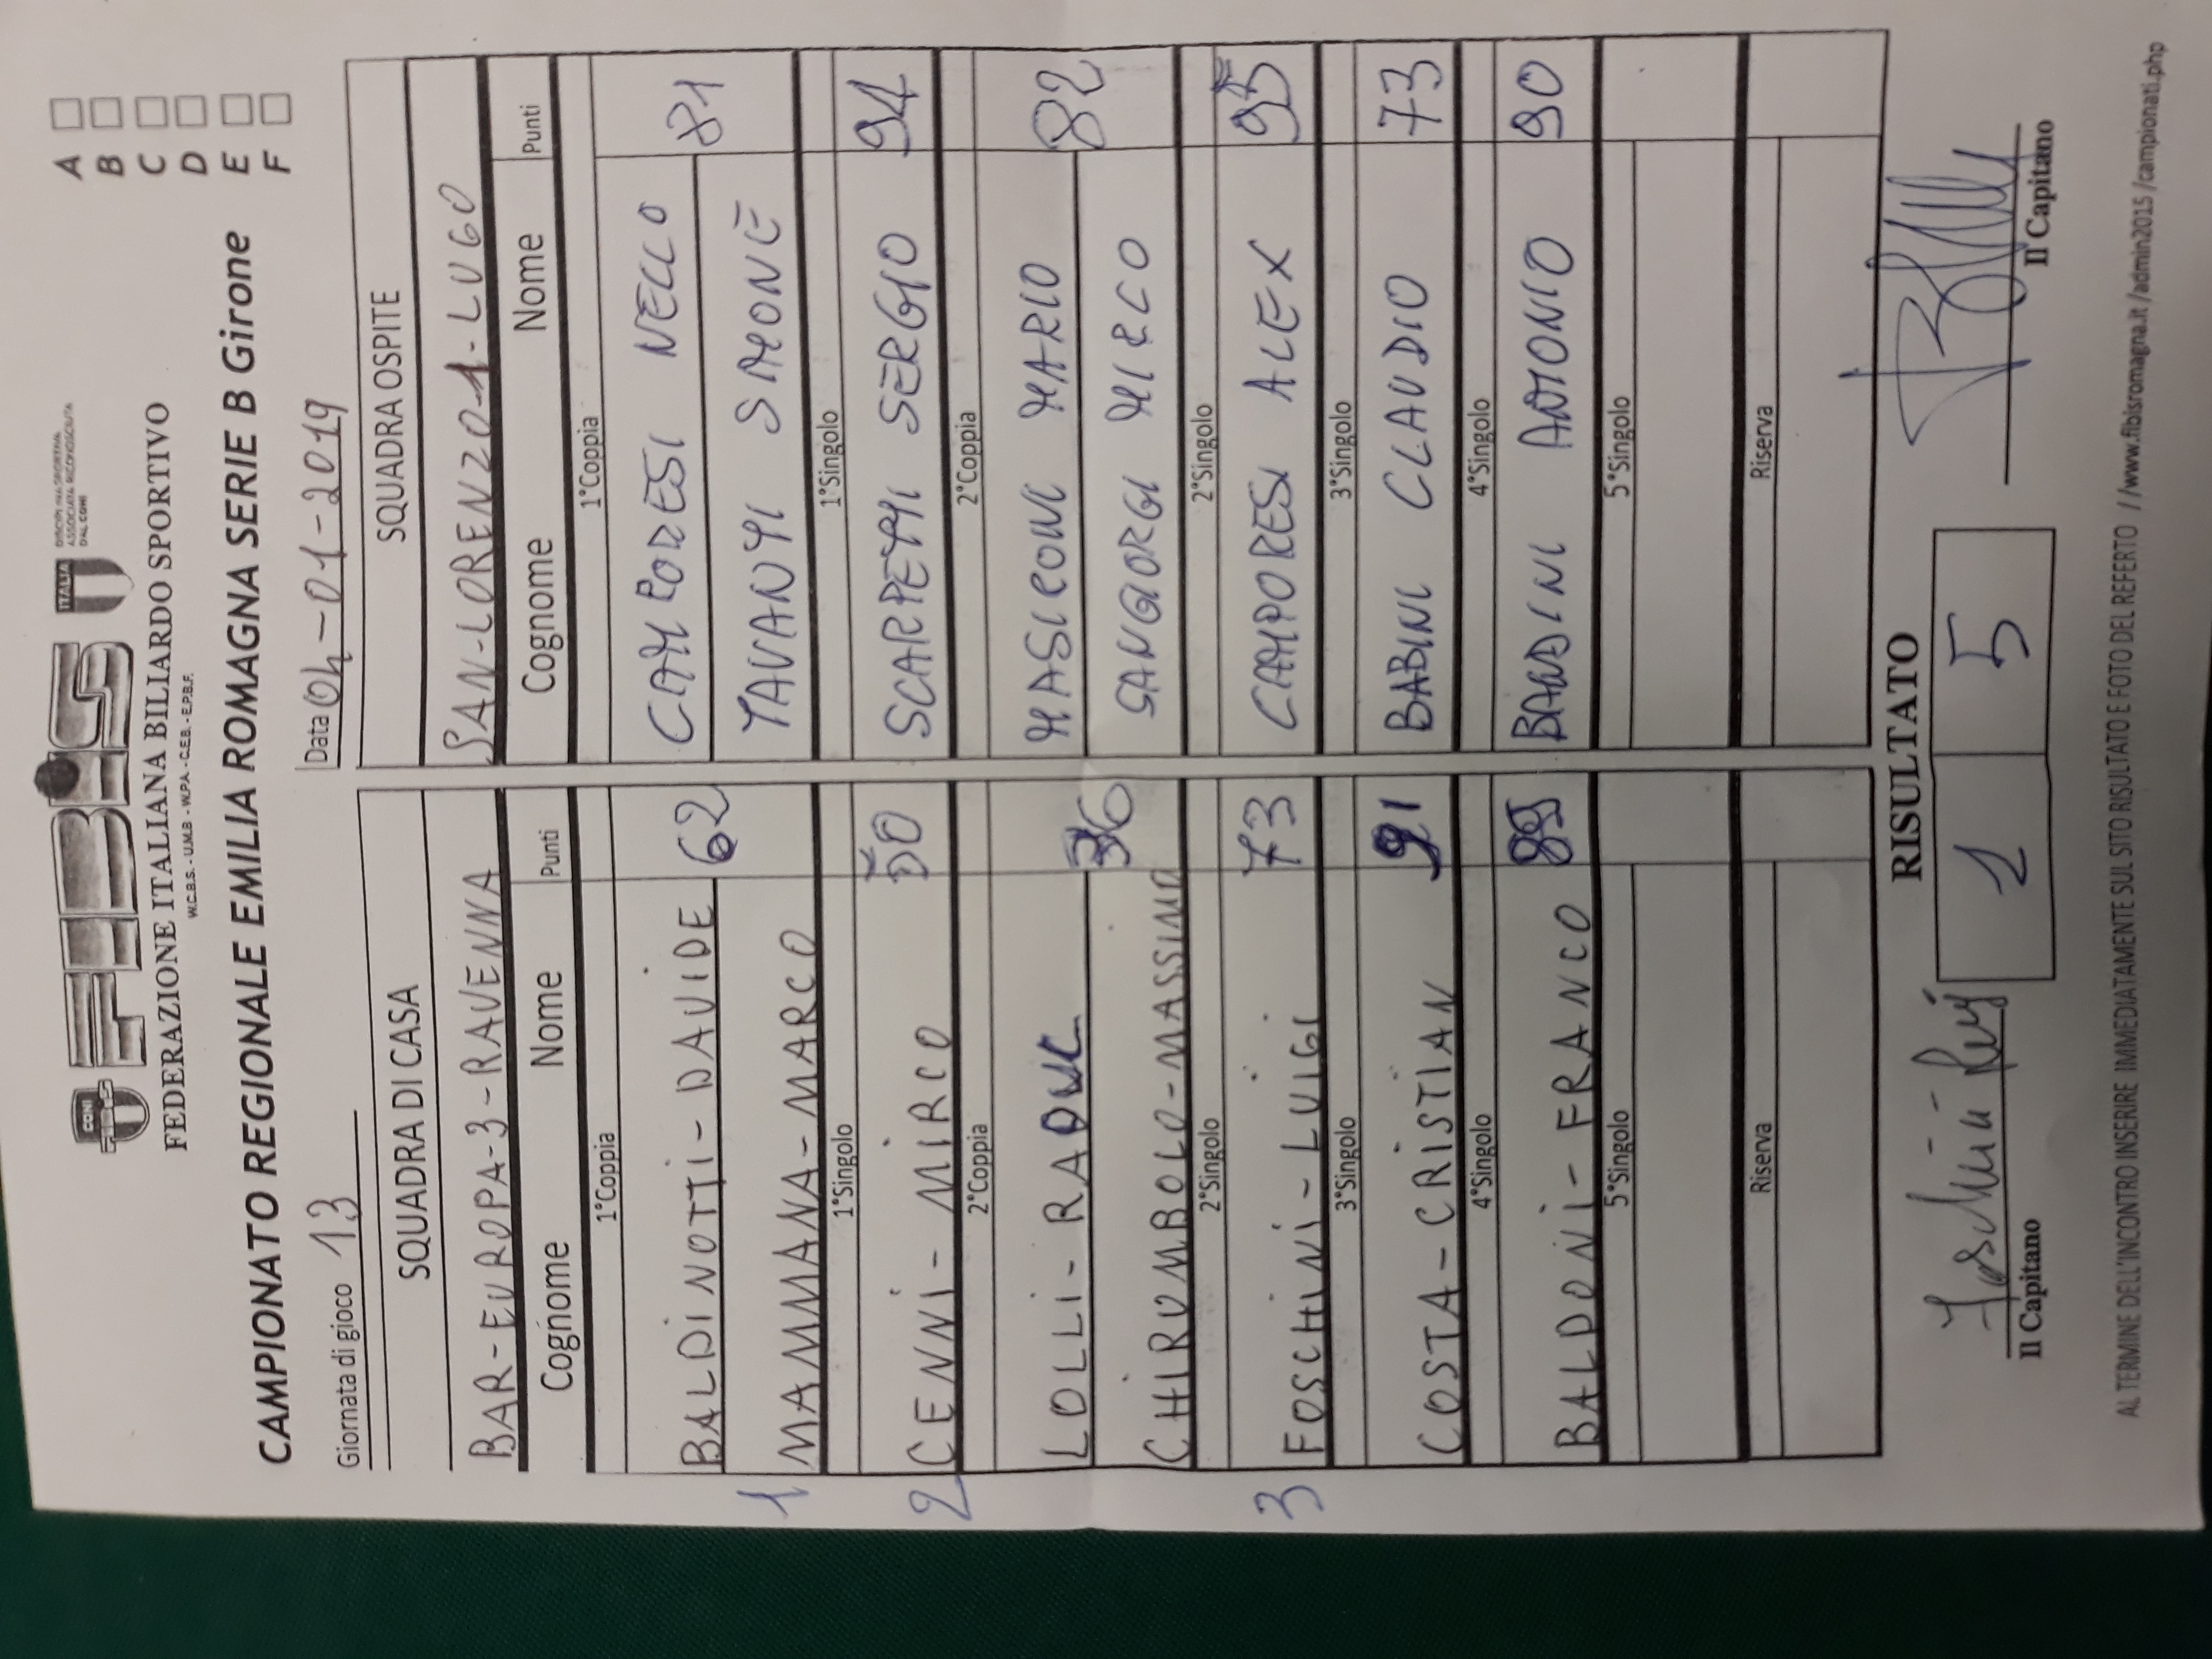 CONI
FIBiS
ITALIA
DISCIPLINA SPORTIVA
ASSOCIATA RICONOSCIUTA
DAL CONI
FEDERAZIONE ITALIANA BILIARDO SPORTIVO
W.C.B.S. - U.M.B - W.P.A. - C.E.B. - E.P.B.F.
CAMPIONATO REGIONALE EMILIA ROMAGNA SERIE B Girone
A
B
C
D
E
F
Giornata di gioco 13
Data 04-01-2019
SQUADRA DI CASA
SQUADRA OSPITE
BAR-EUROPA-3-RAVENNA
SAN-LORENZO1-LUGO
Cognome Nome Punti
Cognome Nome Punti
1°Coppia
1°Coppia
BALDINOTTI-DAVIDE 62
CAMPORESI NELLO 81
1 MAMMANA-MARCO
TAVANTI SIMONE
1°Singolo
1°Singolo
2 CENNI-MIRCO 50
SCARPETTI SERGIO 94
2°Coppia
2°Coppia
LOLLI-RAOUL 36
MASIRONI MARIO 82
CHIRUMBOLO-MASSIMO
SANGIORGI MIRCO
2°Singolo
2°Singolo
3 FOSCHINI-LUIGI 73
CAMPORESI ALEX 95
3°Singolo
3°Singolo
COSTA-CRISTIAN 91
BABINI CLAUDIO 73
4°Singolo
4°Singolo
BALDONI-FRANCO
BANDINI ANTONIO 90
5°Singolo
5°Singolo
Riserva
Riserva
RISULTATO
1 5
Il Capitano
Il Capitano
AL TERMINE DELL'INCONTRO INSERIRE IMMEDIATAMENTE SUL SITO RISULTATO E FOTO DEL REFERTO //www.fibisromagna.it/admin2015/campionati.php